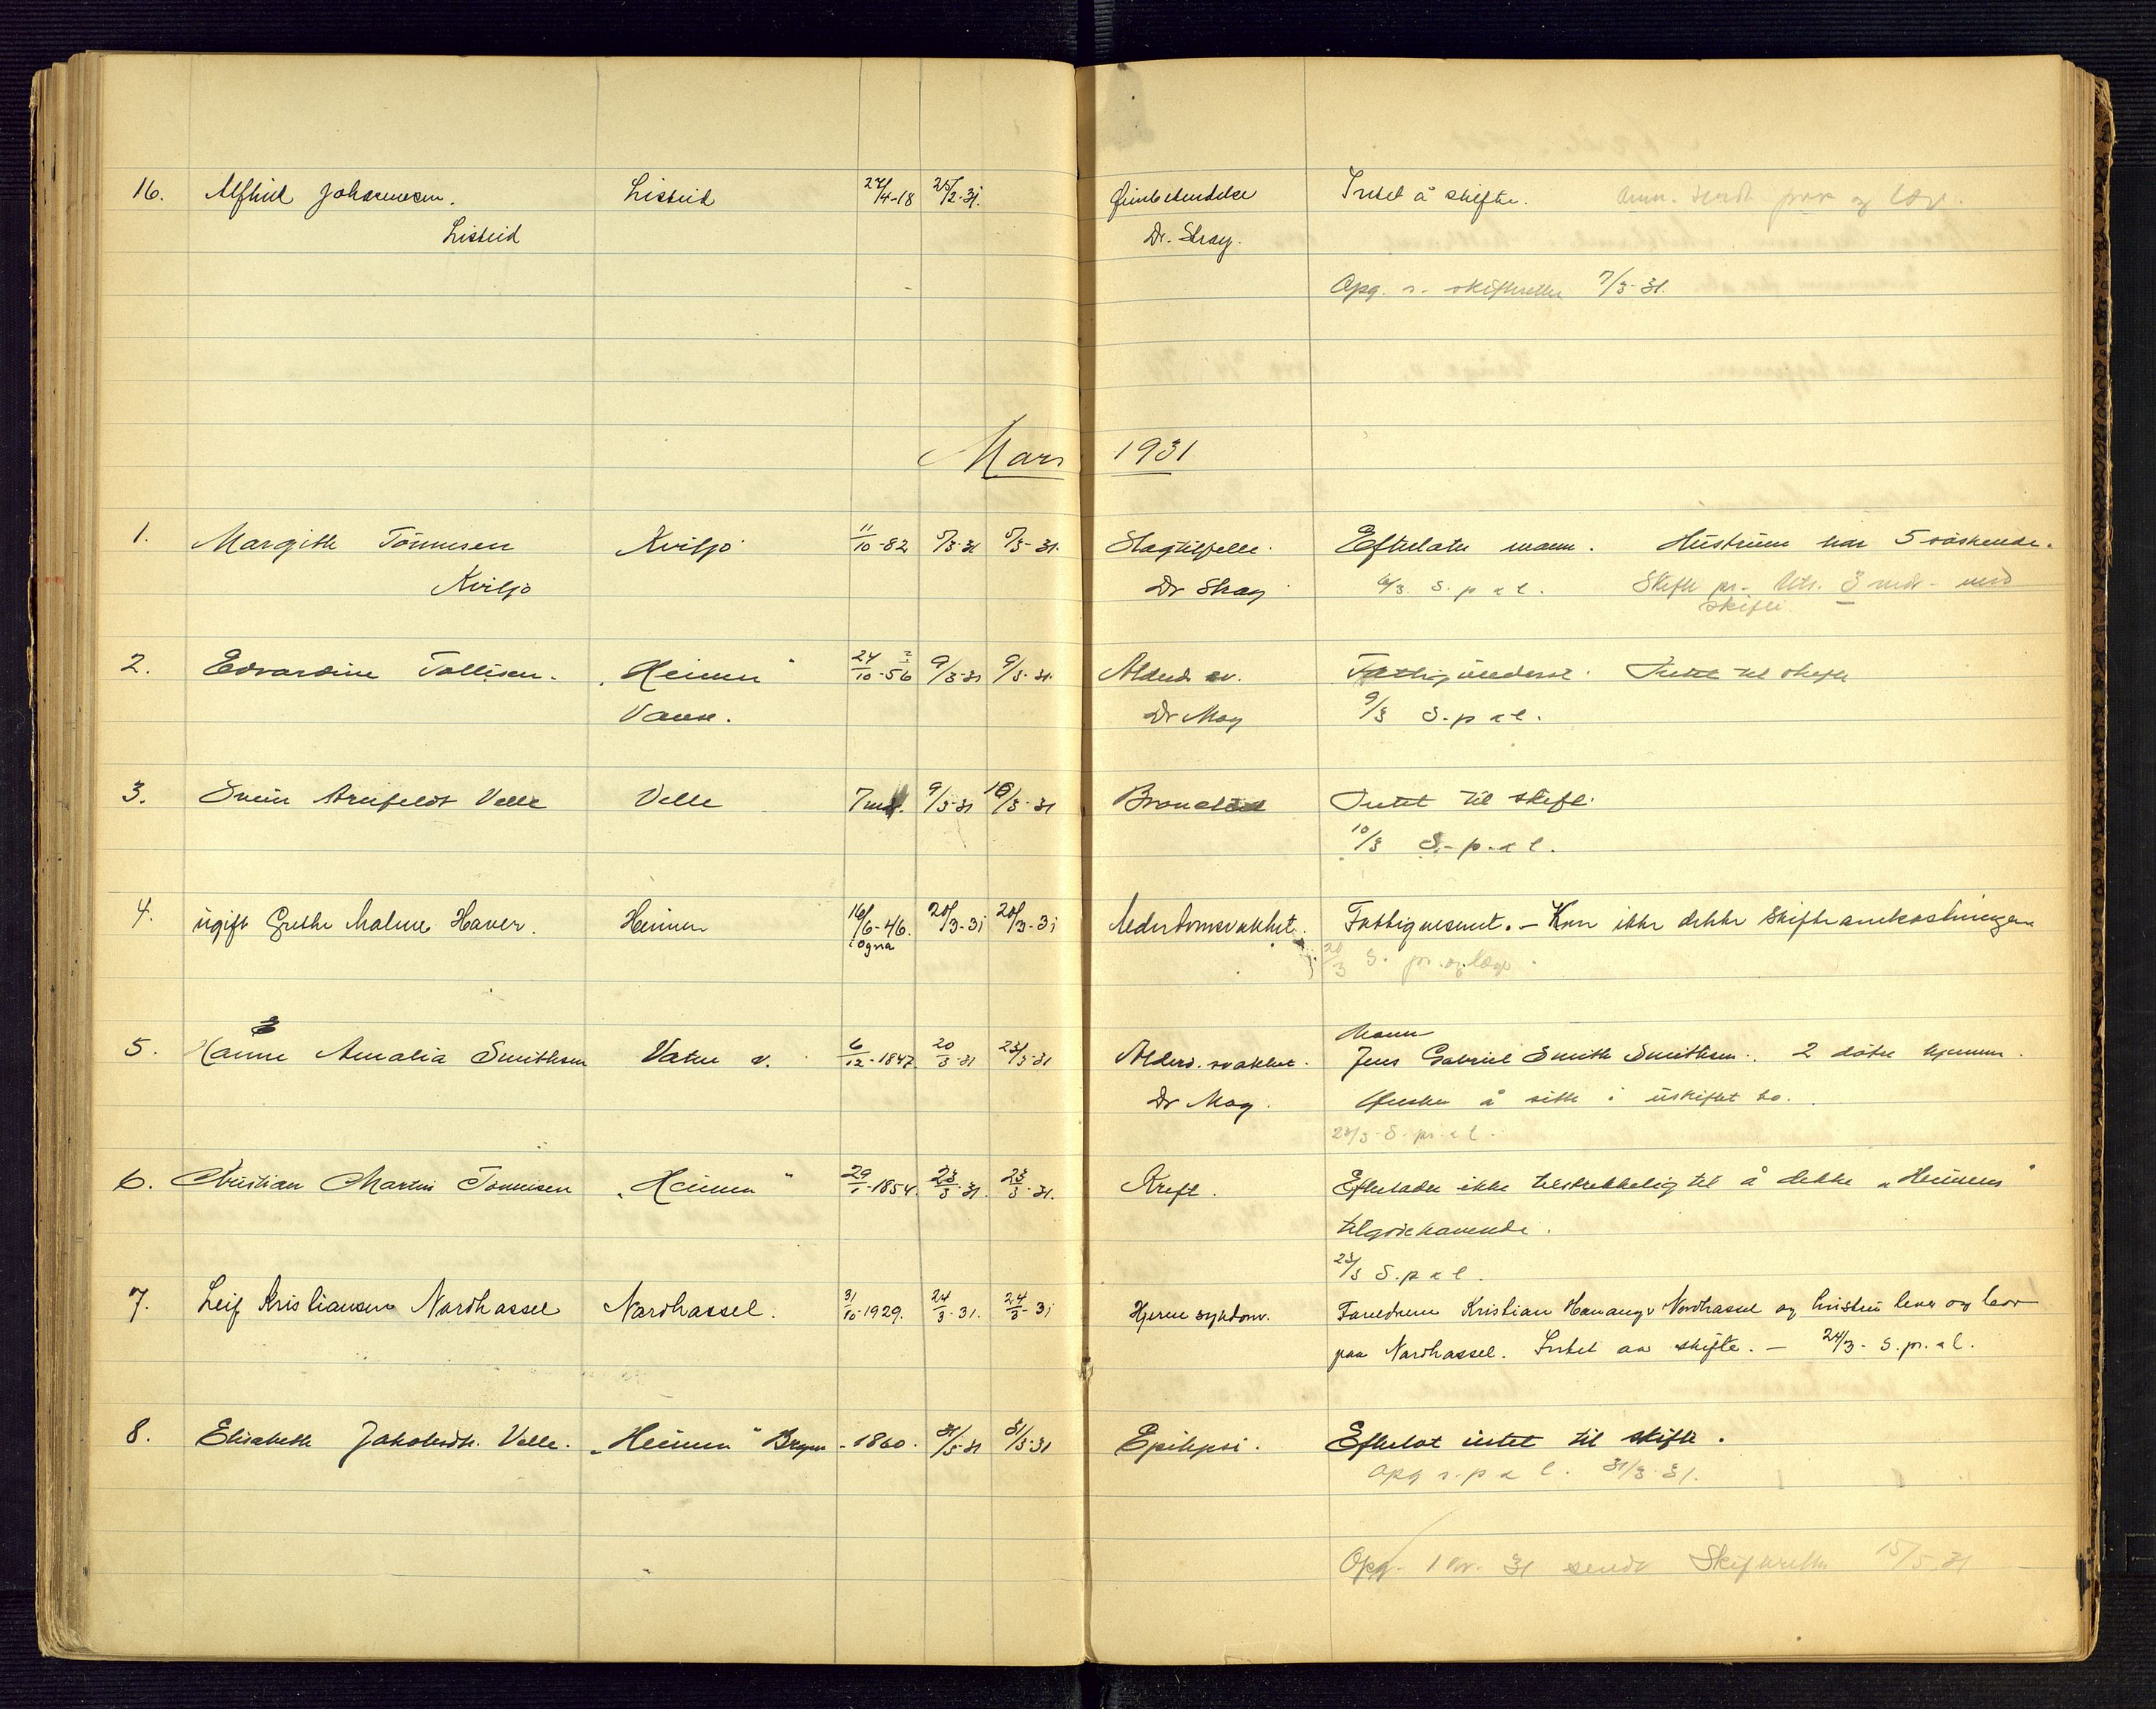 16. Alfhild Johannesen. Listeid 27/4-18 25/2-31. Intet å skifte. Ann. sendt prest og læge.
Listeid Dr. Stray.
Opg. s. skifteretten 7/3-31.
Mars 1931
1. Margith Tönnesen Kviljo 11/10-82 5/3-31 5/3-31. Slagtilfelle. Efterlater mann. Hustruen har 5 söskende.
Kviljo Dr Stray 6/3. S. p & l. Skifte pr. 3 mdr. med
skifte.
2. Edvardine Tollisen. "Heimen" 24/10-56 9/3-31 9/3-31. Alderd. sv. Fattigunderst. Intet til skifte
Vanse. Dr Moy 9/3 S. p & l.
3. Svein Arnfeldt Velle Velle 7 md. 9/3-31 10/3-31 Intet til skifte.
10/3 S. p. & l.
4. ugift Grethe Malene Haver. Heimen 16/6-46. 20/3-31 20/3-31 Alderdomsvakhet. Fattigvesenet. - Kan ikke dekke skifteomkostningene
i Ogna 20/3 S. pr. og læge.
Mann
5. Hanne Amalia Smithsen Vatne v. 6/12-1847. 20/3-31 23/3-31 Alderd. svakhet. Jens Gabriel Smith Smithsen. 2 dötre hjemme.
Dr Moy. Ønsker å sitte i uskiftet bo.
23/3 S. pr. & l.
6. Christian Martin Tönnesen "Heimen" 29/1-1854. 23/3-31. 23/3-31. Kreft. Efterlader ikke tilstrekkelig til å dekke "Heimens"
tilgodehavende.
23/3 S. p & l.
7. Leif Kristiansen Nordhassel Nordhassel. 31/10-1929. 24/3-31. 24/3-31 Hjerne sykdom. Foreldrene Kristian Nordhassel og hustru lever og bor
paa Nordhassel. Intet aa skifte. - 24/3- S. pr. & l.
8. Elisabeth Jakobsdtr. Velle. "Heimen" Brynn -1860. 31/3-31 31/3-31 Epilepsi. Efterlot intet til skifte.
Opg s. p & l. 31/3-31.
Opg. 1 kv. 31 sendt Skifteretten 15/5.31